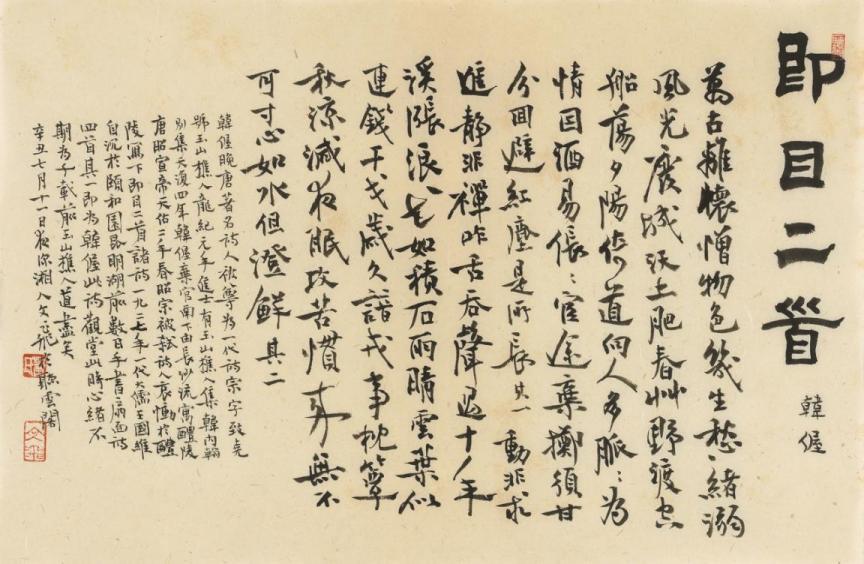 即目二首
韓偓
萬古離懷憎物色幾生愁緒溺
風光廢城沃土肥春艸野渡空
船蕩夕陽倚道向人多脈〻為
情因酒易倀〻宦途棄擲須甘
分回避紅塵是所長其一動非求
進靜非禪咋舌吞聲過十年
溪漲浪花如積石雨晴雲葉似
連錢干戈歲久諳戎事枕簟
秋涼減夜眠攻苦慣來無不
可寸心如水但澄鮮其二
韓偓晚唐著名詩人被尊為一代詩宗字致堯
號玉山樵人龍紀元年進士有玉山樵人集韓內翰
別集天復四年韓偓棄官南下由長沙流寓醴陵
唐昭宣帝天佑二年春昭宗被弒詩人哀慟於醴
陵寫下即目二首諸詩一九二七年一代大儒王國維
自沉於頤和園昆明湖前數日手書扇面詩
四首其一即為韓偓此詩觀堂此時心緒不
期為千載前玉山樵人道盡矣
辛丑七月十一日夜深湘人文飛於聽雲閣